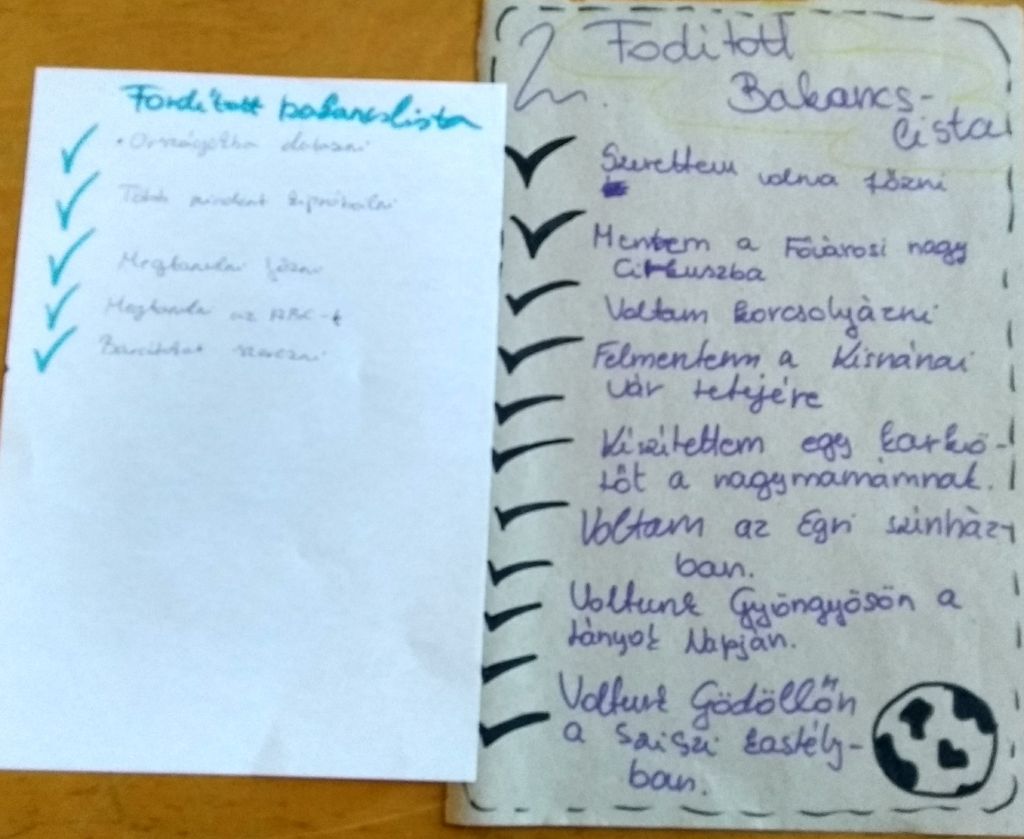 Fordított bakancslista
• Országokba
Több mindent kipróbálni
Megtanulni főzni
Megtanulni az ABC-t
Barátokat szerezni
2.
Fodított
Bakancs-
lista
Szerettem volna főzni
Mentem a Fővárosi nagy
Cirkuszba
Voltam korcsolyázni
Felmentem a Kisnánai
vár tetejére
Készítettem egy karkö-
tőt a nagymamámnak.
Voltam az Egri szinház-
ban.
Voltunk Gyöngyösön a
Lányok Napján.
Voltunk Gödöllőn
a Sziszi kastély-
ban.